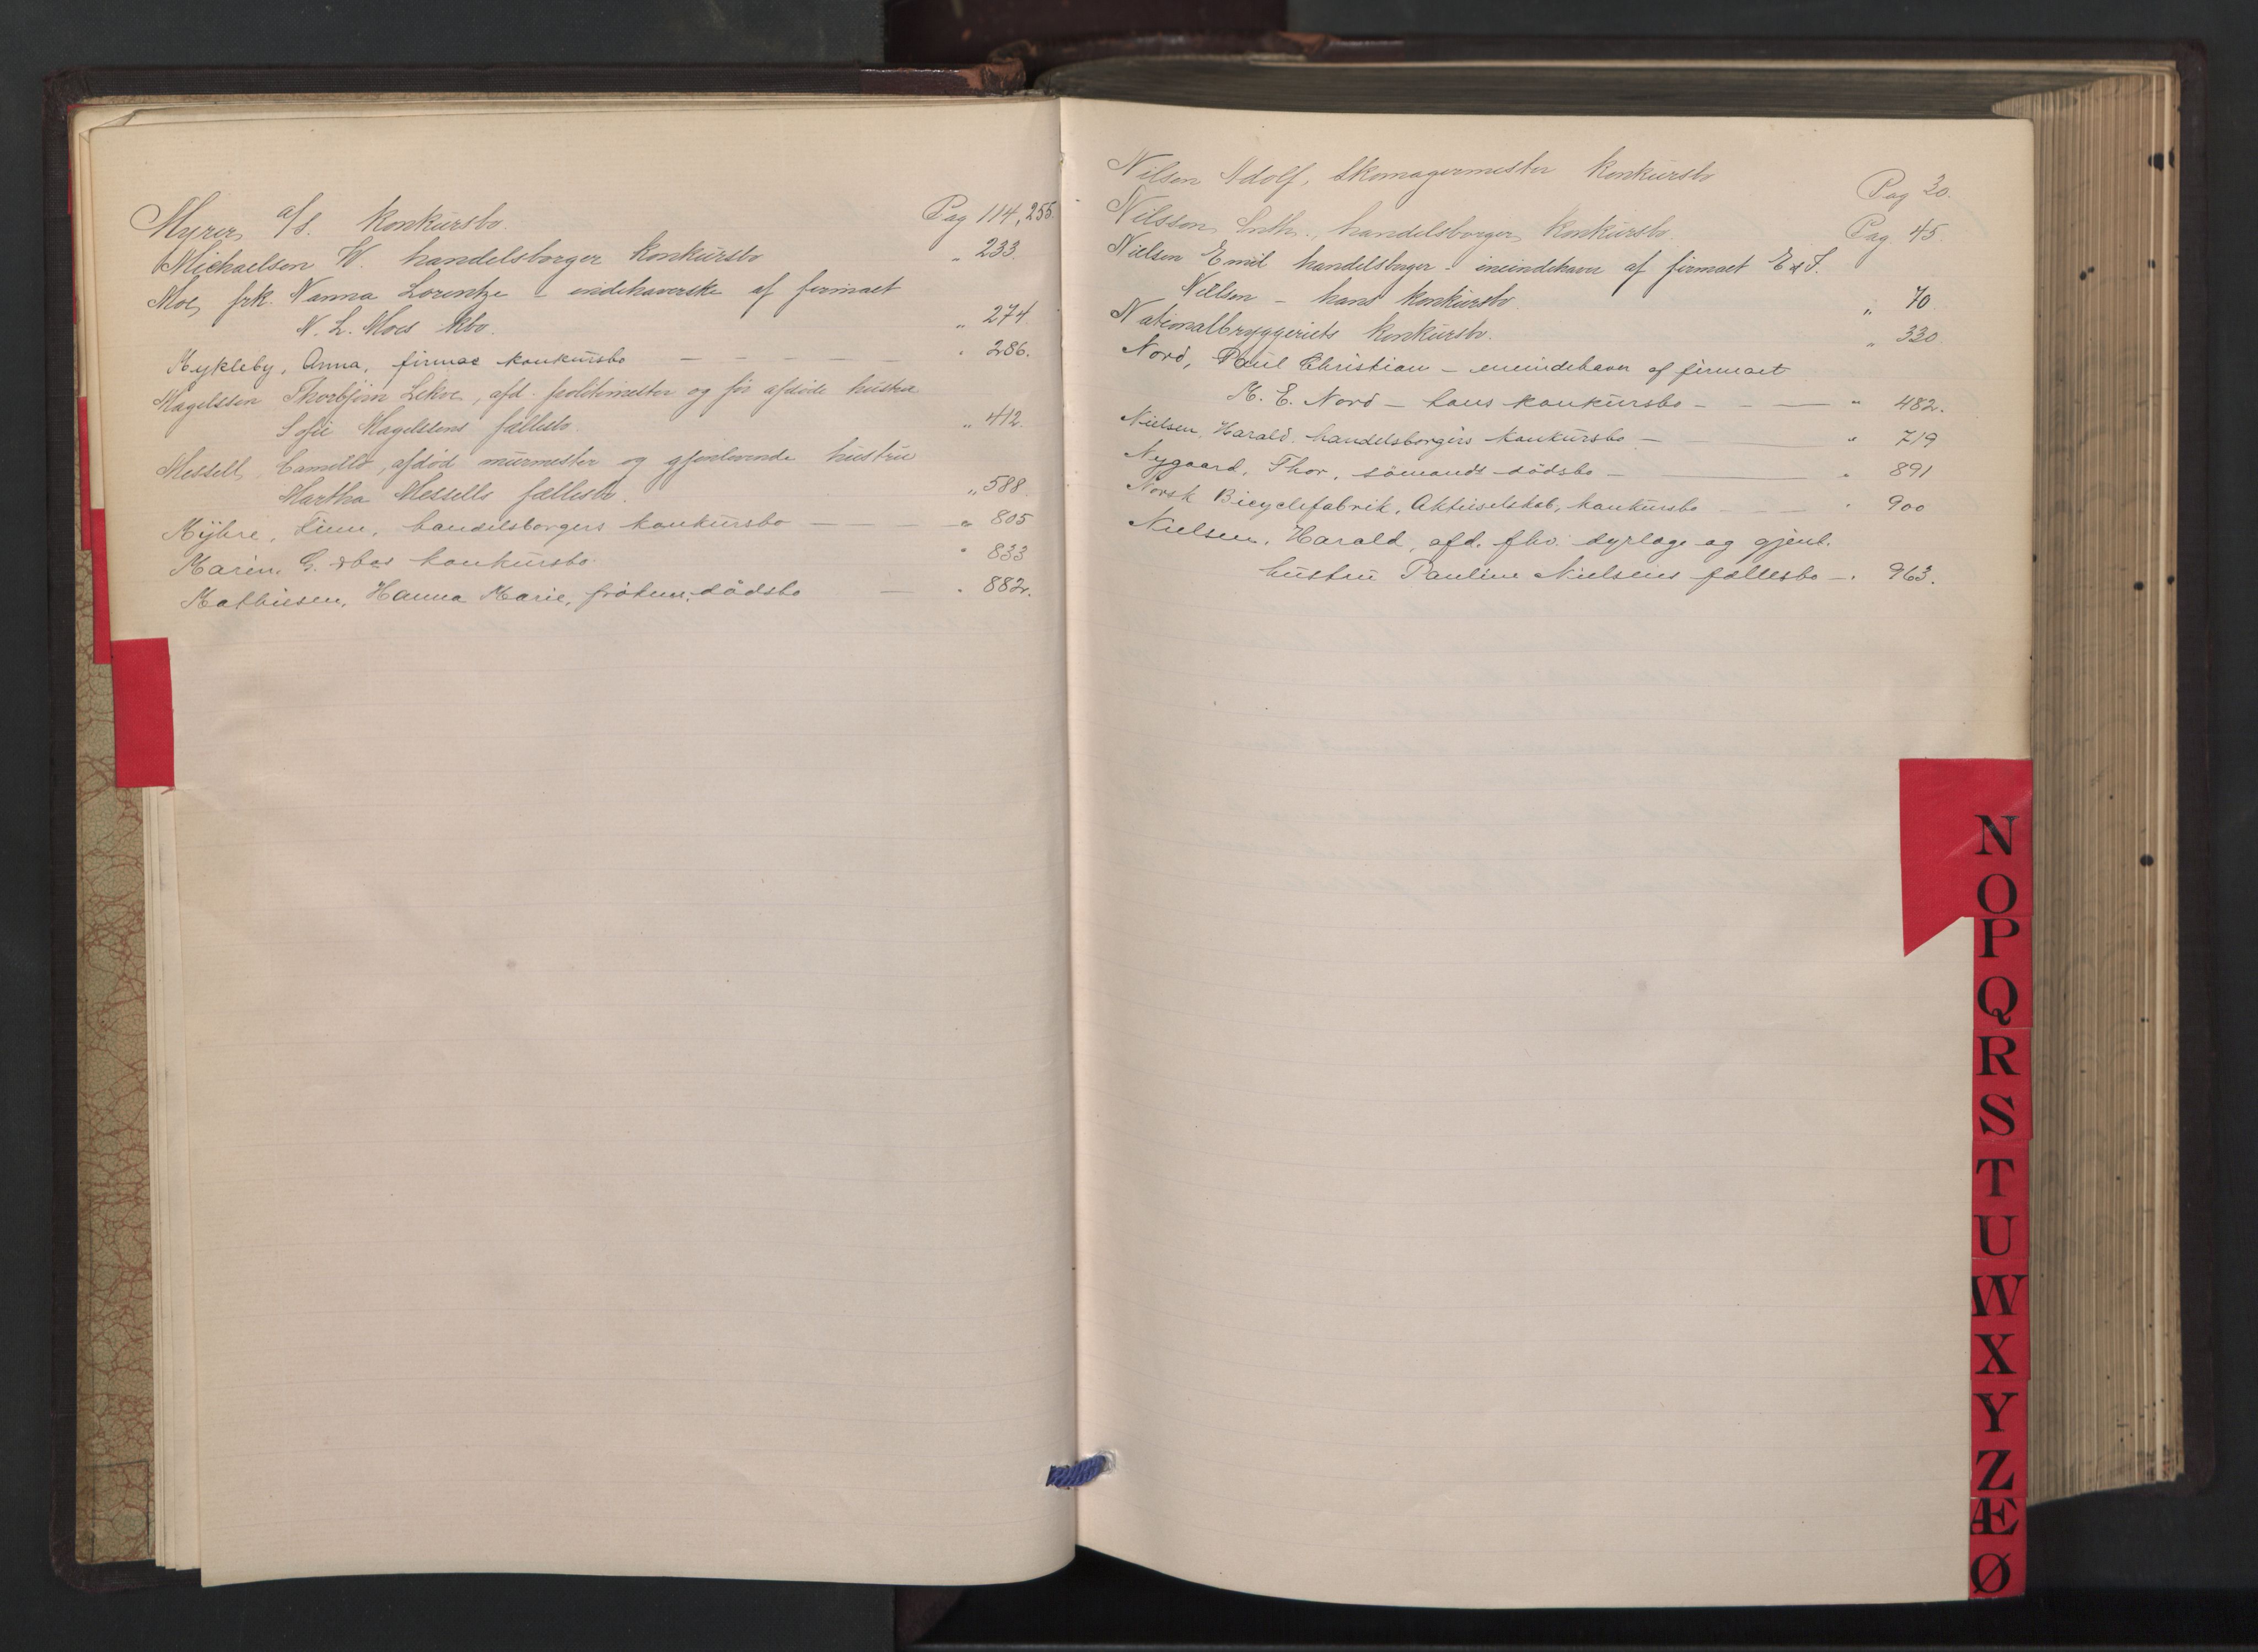 Myrer, a/s. konkursbo. Pag 114, 255.
Michaelson W. handelsborger konkursbo „ 233.
Moe, frk. Nanna Lorentze – indehaverske af firmaet
N. L. Moes kbo. „ 274.
Mykleby, Anna, firmae konkursbo — — — — — „ 286.
Magelssen Thorbjørn Lekve, afd. politimester og før afdøde hustru
Sofie Magelssens fællesbo. „ 412.
Messell, Camillo, afdød murmester og gjenlevende hustru
Martha Messells fællesbo. „ 588.
Myhre, Finn, handelsborgers konkursbo — — „ 805
Marin, G. & bos konkursbo. „ 833
Mathiesen, Hanna Marie, frøken, dødsbo — „ 882.
Nilsen Adolf, Skomagermester konkursbo Pag 30.
Nilsson, handelsborger, konkursbo. Pag. 45.
Nielsen Emil handelsborger – eneindehaver af firmaet E & S.
Nielsen – hans konkursbo. „ 70
Nationalbryggeriets konkursbo. „ 330
Nord, Paul Christian – eneindehaver af firmaet
M. E. Nord – hans konkursbo – — — „ 482.
Nielsen, Harald, handelsborgers konkursbo — — „ 719
Nygaard, Thor, sömands dödsbo — — „ 891
Norsk Bicyclefabrik, Aktieselskab, konkursbo — — „ 900
Nielsen, Harald, afd. fhv. dyrlæge og gjenl.
hustru Pauline Nielsens fællesbo — „ 963.
N
O
P
Q
R
S
T
U
W
X
Y
Z
Æ
Ø